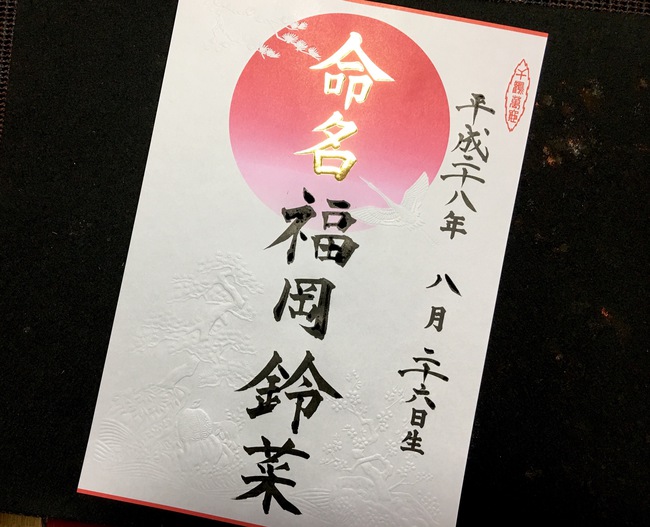 平成二十八年 八月 二十六日生
命名 福岡鈴菜